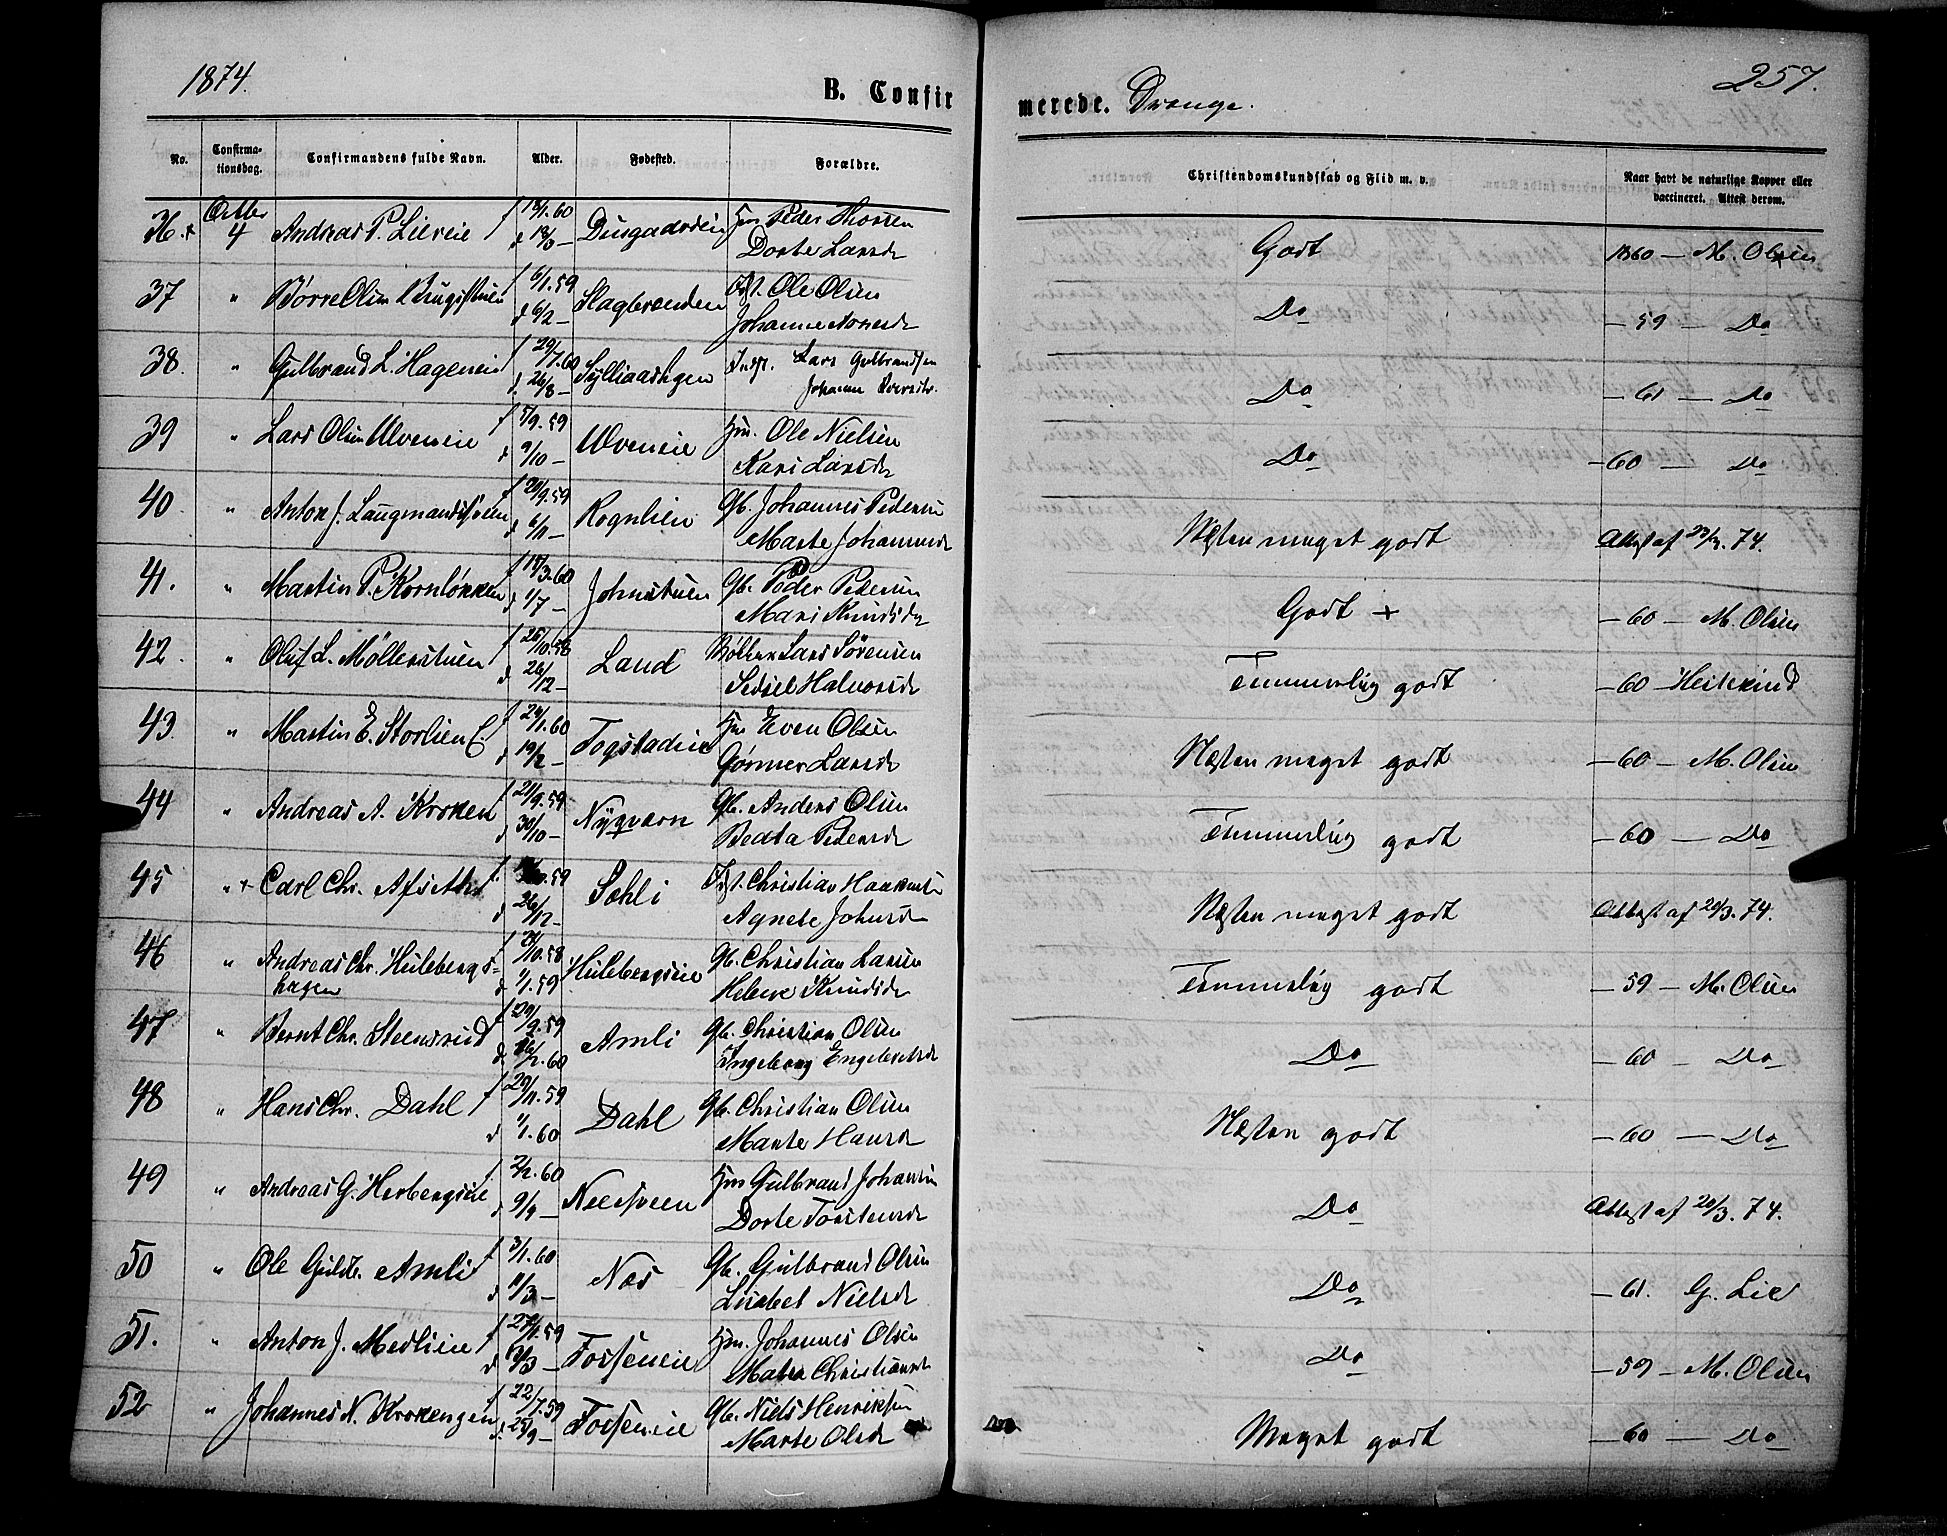 1874.
B. Confir
merede. Drenge.
257.
No.
Confirma-
tionsdag.
Confirmandens fulde Navn.
Alder.
Fødested.
Forældre.
Christendomskundskab og Flid m. v.
Naar havt de naturlige Kopper eller
vaccineret. Attest derom.
36. Octbr 4 Andreas P. Lieeie f 13/1.60 Hm Peder
d 18/3 — Dorte Larsd Godt 1860 — M. Olsen
37 " Børre Olsen f 6/1.59 Slagbrenden Ole Olsen
d 6/2 — Johanne Do — 59 — Do
38. " Gulbrand L. Hageneie f 29/7.60 Indst. Lars Gulbrandsen
d. 26/8 — Johanne Do — 61 — Do
39 " Lars Olsen Ulveneie f 5/9.59 Ulveneie Hm. Ole Nielsen
d 9/10 — Kari Larsd Do — 60 — Do
40. " Anton J. Laugmandsveen f 29/9.59 Rognlien Gb. Johannes Pedersen
d 6/11 — Marte Johannesd Næsten meget godt Attest af 74.
41. " Martin P. Kornløkken f 18/3.60 Johnstuen Gb. Peder Pedersen
d 1/7 — Mari Knudsd Godt + — 60 — M. Olsen
42. " Oluf L. Møllerstuen f 25/10.58 Land Lars Sørensen
d 26/12 — Sidsel Halvorsd Temmelig godt — 60 — Heilskind
43. " Martin E. Storlien f 24/1.60 Togstadeie Hm Even Olsen
d 19/2 — Gørmer Larsd Næsten meget godt — 60 — M. Olsen
44 " Andreas A. Kroken f 21/9.59 Nyqværn Gb. Anders Olsen
d 30/10 — Beata Pedersd Temmelig godt — 60 — Do
45 " + Carl Chr. Afseth f. 59 Sehli Christian Haakensen
d 26/12 — Agnete Johnsd Næsten meget godt Attest af 20/3. 74.
46 " Andreas Chr. Hulebergs= f 10.58 Hulebergseie Gb. Christian Larsen
hagen d 1/1.59 Helene Knudsd Temmelig godt — 59 — M. Olsen
47 " Bernt Chr. Steensrud f 29/9.59 Amli Gb. Christian Olsen
d. 2.60 Ingeborg Engebretsd Do — 60 — Do
48 " Hans Chr. Dahl f 29/11.59 Dahl Gb. Christian Olsen
d 1/1.60 Marte Hansd Næsten godt — 60 — Do
49 " Andreas G. Herbergseie f 2/2.60 Hm Gulbrand Johansen
d 9/4 — Dorte Torstensd Do Attest af 20/3. 74.
50 " Ole Gulb. Amli f 3/1.60 Nes Gb. Gulbrand Olsen
d 11/3 — Lisabet Nielsd Do — 61. G. Lie
51. " Anton J. Medlieie f 27/1.59 Fosseneie Hm. Johannes Olsen
d 13/3 — Christiansd Do — 59 — M. Olsen
52 " Johannes N. Krokengen f 22/7.59 Fosseneie Gb. Niels Henriksen
d. 25/9 — Marte Olsd Meget godt — 60 — Do